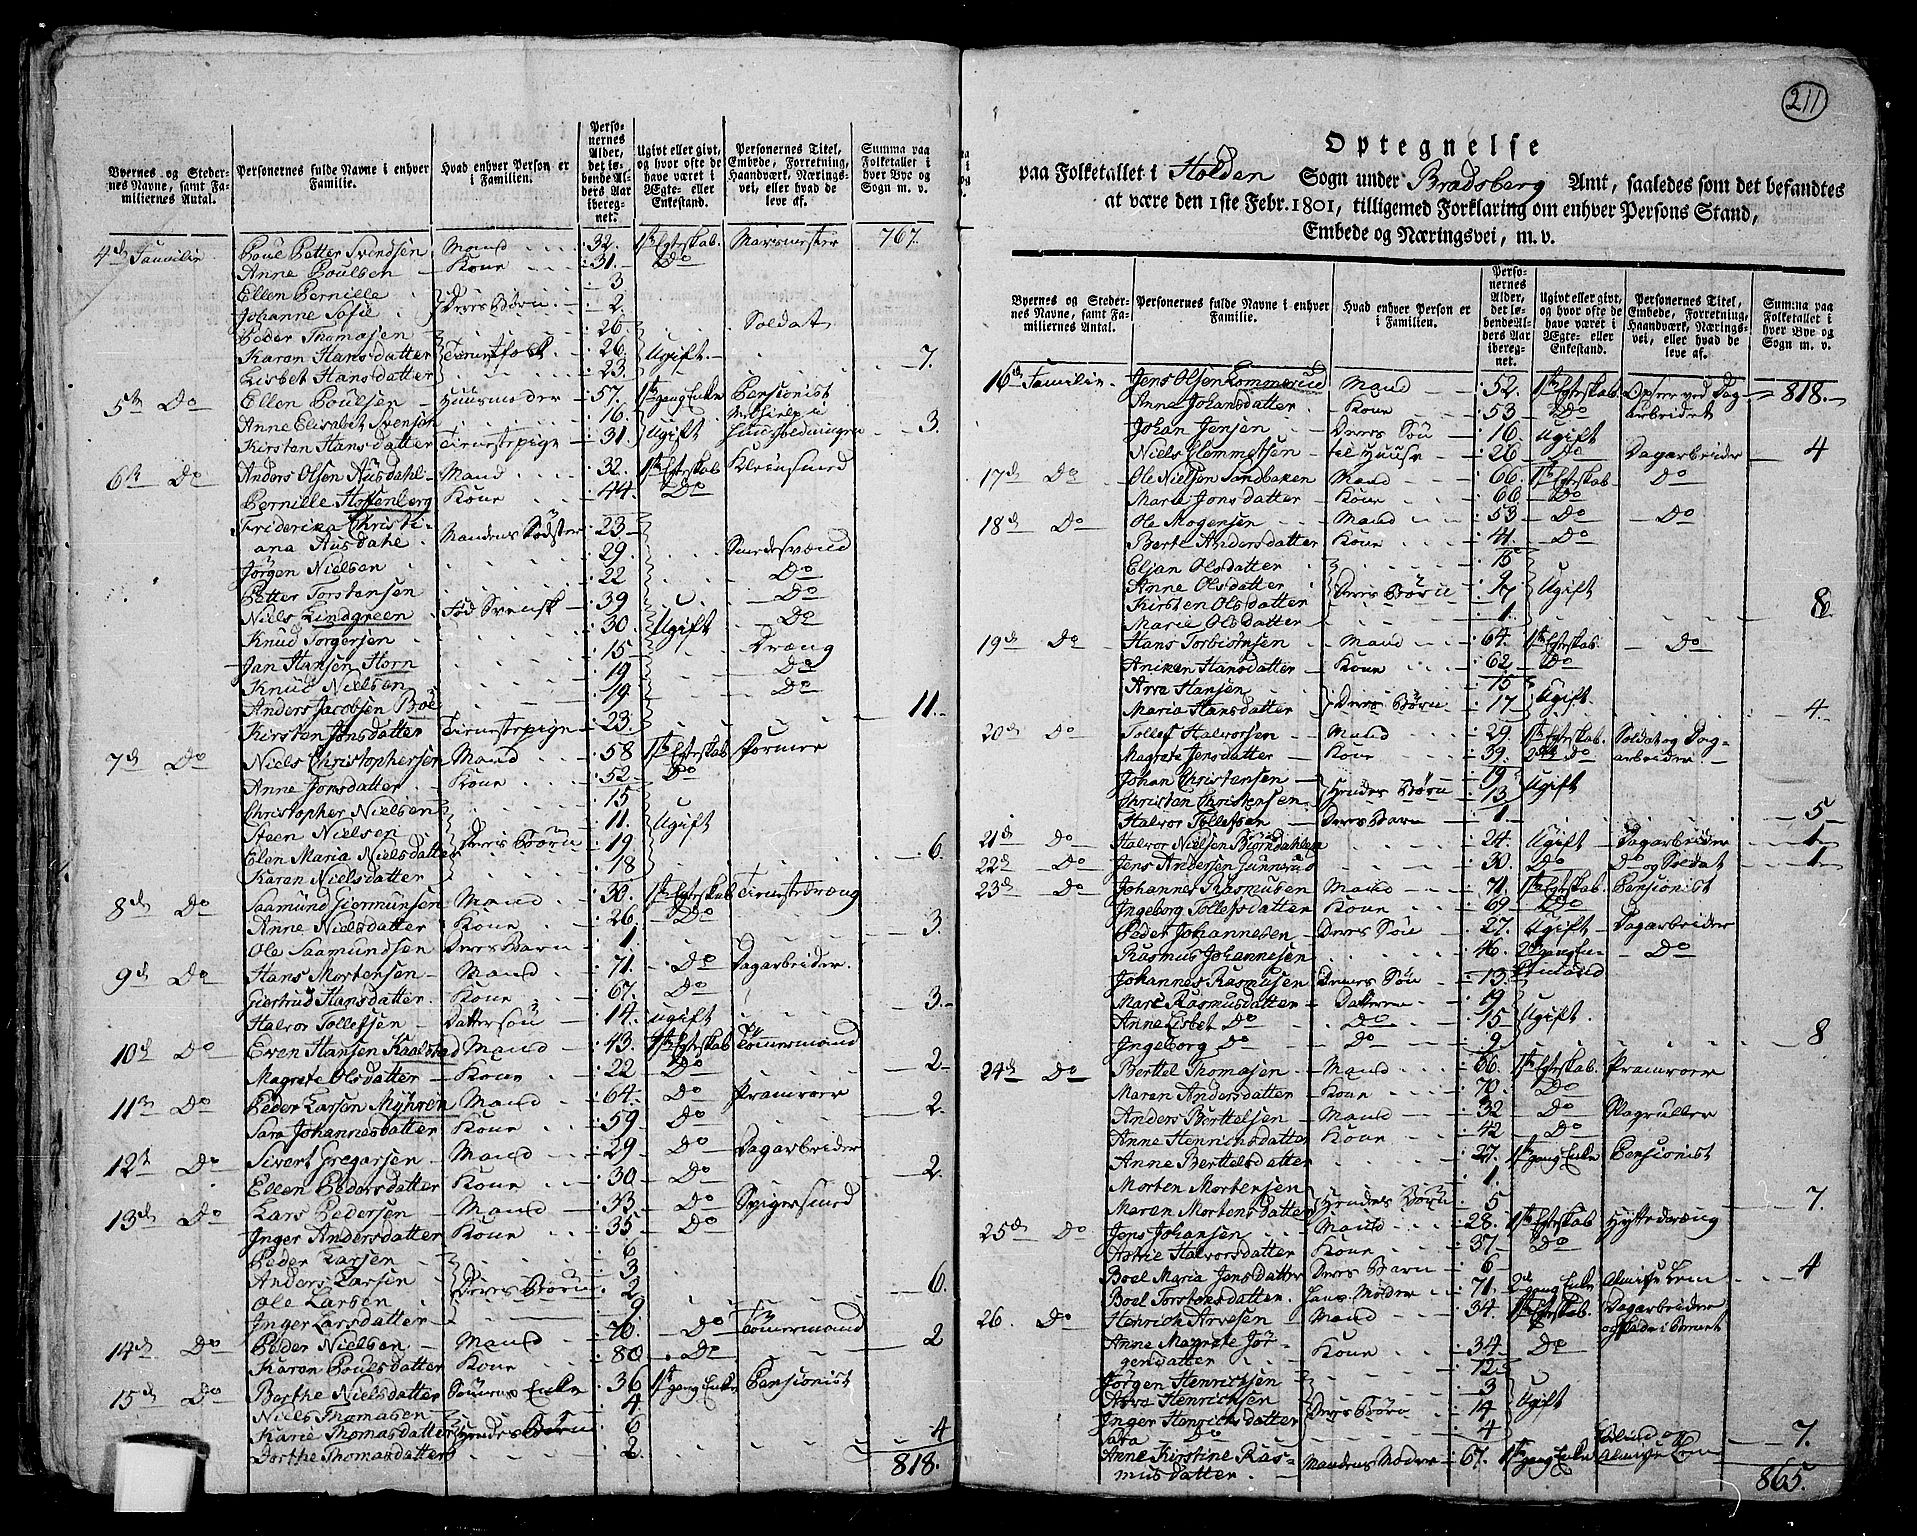 Byernes og Stedernes Navne, samt Familiernes Antal. | Personernes fulde Navne i enhver Familie. | Hvad enhver Person er i Familien. | Personernes Alder, det løbende Alders Aar iberegnet. | Ugivt eller givt, og hvor ofte de have været i Ægte- eller Enkestand. | Personernes Titel, Embede, Forretning, Haandværk, Næringsvei, eller hvad de leve af. | Summa paa Folketallet i hver Bye og Sogn m. v.
4de Familie Poul Petter Svendsen Mand 32. 1te Egteskab. Marsmester 767.
Anne Poulsen Kone 31. Do
Ellen Pernille 3
Johanne Sofie Deres Børn 2
Peder Thomasen 26 Soldat
Karen Hansdatter Tienestfolk 26 Ugift
Lisbet Hansdatter 23. 7.
5te Do Ellen Poulsen Huusmoder 57. 1te gang Enke Pensionist
Anne Elisabet Svensen 16
Kirsten Hansdatter Tienestepige 31. Ugift Huusholdningen 3.
6te Do Anders Olsen Ausdahl Mand 32. 1te Egteskab Kleinsmed
Pernille Hoffenberg Kone 44 Do
Friderica Christiana Ausdahl Mandens Södster 23
Jørgen Nielsen 29. Smedesvend
Petter Torstensen 22 Do
Niels Lindgreen Fød Svensk 39 Do
Knud Torgersen 30. Ugift Do
Jan Hansen Horn 15 Dræng
Knud Nielsen 19 Do
Anders Jacobsen Boe 19 Do
Kirsten Jonsdatter Tienestepige 23. 11.
7de Do Niels Christophersen Mand 58 1te Egteskab Former
Anne Jonsdatter Kone 52 Do
Christopher Nielsen 15
Steen Nielsen 11. Ugift
Elen Maria Nielsdatter Deres Børn 19
Karen Nielsdatter 18 6.
8de Do Saamund Giermunsen Mand 30. 1te Egteskab Tienestedræng
Anne Nielsdatter Kone 26 Do
Ole Saamundsen Deres Barn 1 3.
9de Do Hans Mortensen Mand 71. Do Dagarbeider.
Giertrud Hansdatter Kone 67. Do
Halvor Tollefsen Dattersøn 14. ugift 3.
10de Do Even Hansen Kaalstad Mand 43. 1te Egteskab Tømmermand
Magrete Olsdatter Kone 22 Do 2
11te Do Peder Larsen Myhren Mand 64. Do Pramroer
Sara Johannesdatter Kone 59 Do 2.
12te Do Sivert Gregarsen Mand 29 Do Dagarbeider
Ellen Pedersdatter Kone 30 Do 2.
13de Do Lars Pedersen Mand 33. Do Spigersmed
Inger Andersdatter Kone 35 Do
Peder Larsen 6
Anders Larsen 3
Ole Larsen Deres Børn 2
Inger Larsdatter 9 6.
14de Do Peder Nielsen Mand 70. Do Tømmermand
Karen Poulsdatter Kone 80 Do 2
15de Do Berthe Nielsdatter Enke 36 1te gang Enke Pensionist
Niels Thomasen 4
Karie Thomasdatter Hendes Børn 6
Dorthe Thomasdatter 2 4
818.
211
Optegnelse
paa Folketallet i Holden Sogn under Bradsberg Amt, saaledes som det befandtes
at være den 1ste Febr. 1801, tilligemed Forklaring om enhver Persons Stand,
Embede og Næringsvei, m. v.
Byernes og Stedernes Navne, samt Familiernes Antal. | Personernes fulde Navne i enhver Familie. | Hvad enhver Person er i Familien. | Personernes Alder, det løbende Alders Aar iberegnet. | Ugivt eller givt, og hvor ofte de have været i Ægte- eller Enkestand. | Personernes Titel, Embede, Forretning, Haandværk, Næringsvei, eller hvad de leve af. | Summa paa Folketallet i hver Bye og Sogn m. v.
16de Familie Jens Olsen Lommerud Mand 52. 1te Egteskab ved Dagarbeidet 818.
Anne Johansdatter Kone 53 Do
Johan Jensen Deres Søn 16 Ugift
Niels Clemmetsen til Huuse 26 Do Dagarbeider 4
17de Do Ole Nielsen Sandbaken Mand 66. 1te Egteskab Do
Marie Jonsdatter Kone 66 Do
18de Do Ole Mogensen Mand 53 Do Do
Berte Andersdatter Kone 41. Do
Eljan Olsdatter 15
Anne Olsdatter 9 Ugift
Kirsten Olsdatter Deres Børn 7
Marie Olsdatter 1 8
19de Do Hans Torbiørnsen Mand 64. 1te Egteskab Do
Aniken Hansdatter Kone 62 Do
Arve Hansen 15
Maria Hansdatter Deres Børn 17 Ugift 4.
20de Do Tollef Halvorsen Mand 29. 1te Egteskab Soldat og Dagarbeider
Magrete Jensdatter Kone 39. 2det Do
Johan Christensen 19 Ugift
Christen Christensen Hendes Børn 13
Halvor Tollefsen Deres Barn 1 5
21de Do Halvor Nielsen Biørndahlen 24. Ugift Dagarbeider 1
22de Do Jens Andersen Gunnerud 30. Do Do og Soldat 1
23de Do Johannes Rasmusen Mand 71. 1te Egteskab Pensionist
Ingeborg Tollefsdatter Kone 69 Do
Peder Johannesen Deres Søn 27. Ugift Dagarbeider
Rasmus Johannesen 46. 2 gang Enkemand Do
Johannes Rasmusen Deres Søn 13
Mari Rasmusdatter Døttre 19
Anne Lisbet Do Do 15 Ugift.
Ingeborg Do Do 9 8
24de Do Berttel Thomasen Mand 66. 1te Egteskab Pramroer
Maren Andersdatter Kone 70. Do
Anders Berttelsen Mand 32 Do
Anne Henrichsdatter Kone 42 Do
Anne Berttelsdatter 27. 1te gang Enke Pensionist
Morten Mortensen 1.
Maren Mortensdatter Hendes Børn 5 7.
25de Do Jens Johansen Mand 28. 1te Egteskab Hyttedræng
Astrie Halvorsdatter Kone 37. Do
Boel Maria Jensdatter Deres Barn 6
Boel Torstensdatter. Hans Moder 71. 2de gang Enke Almisse Lem 4
26. Do Henrich Arvesen Mand 34. 1te Egteskab Dagarbeider
Anne Magrete Jørgensdatter Kone 34 Do
Jørgen Henrichsen 12
Arve Henrichsen 3
Inger Henrichsdatter Deres Børn 14 Ugift
Sara Do 4
Anne Kirstine Rasmusdatter Mandens Moder 67. 1te gang Enke Blind og Almisse Lem 7.
865.